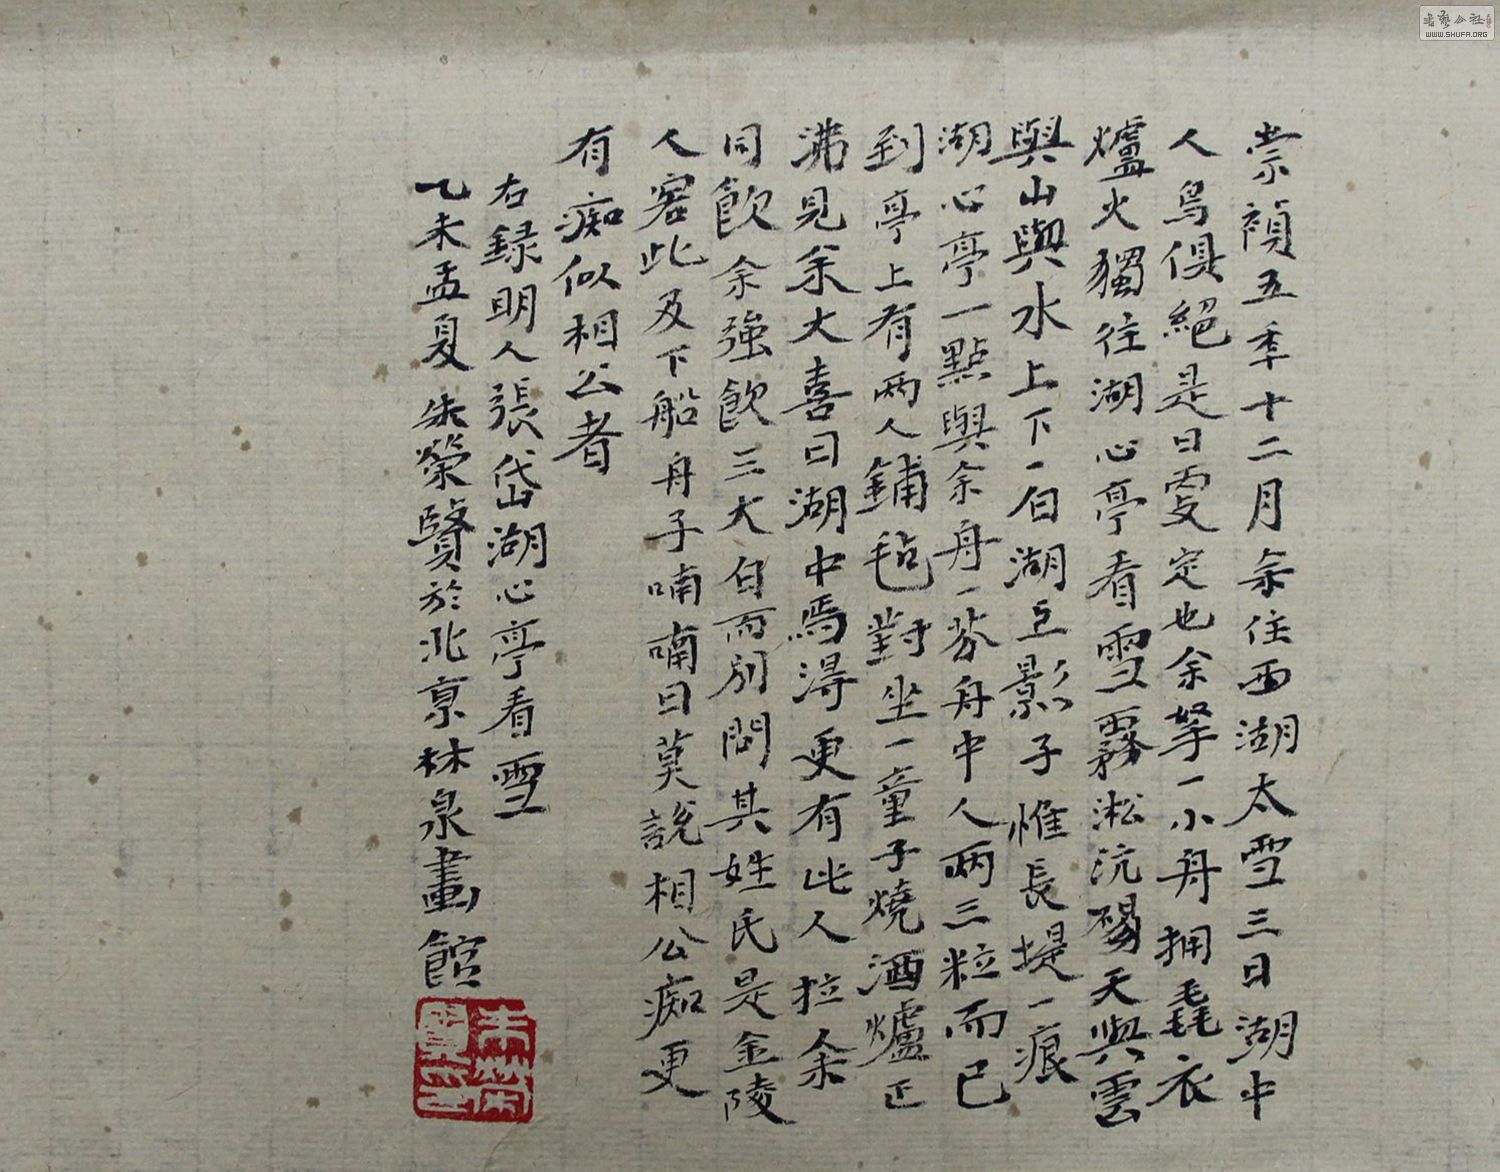 崇禎五年十二月余住西湖大雪三日湖中
人鳥俱絕是日更定也余拏一小舟擁毳衣
爐火獨往湖心亭看雪霧淞沆碭天與雲
與山與水上下一白湖上影子惟長堤一痕
湖心亭一點與余舟一芥舟中人兩三粒而已
到亭上有兩人鋪毡對坐一童子燒酒爐正
沸見余大喜曰湖中焉得更有此人拉余
同飲余強飲三大白而別問其姓氏是金陵
人客此及下船舟子喃喃曰莫說相公痴更
有痴似相公者
右録明人張岱湖心亭看雪
乙未孟夏朱榮賢於北京林泉畫館
朱榮賢印
書藝公社
WWW.SHUFA.ORG